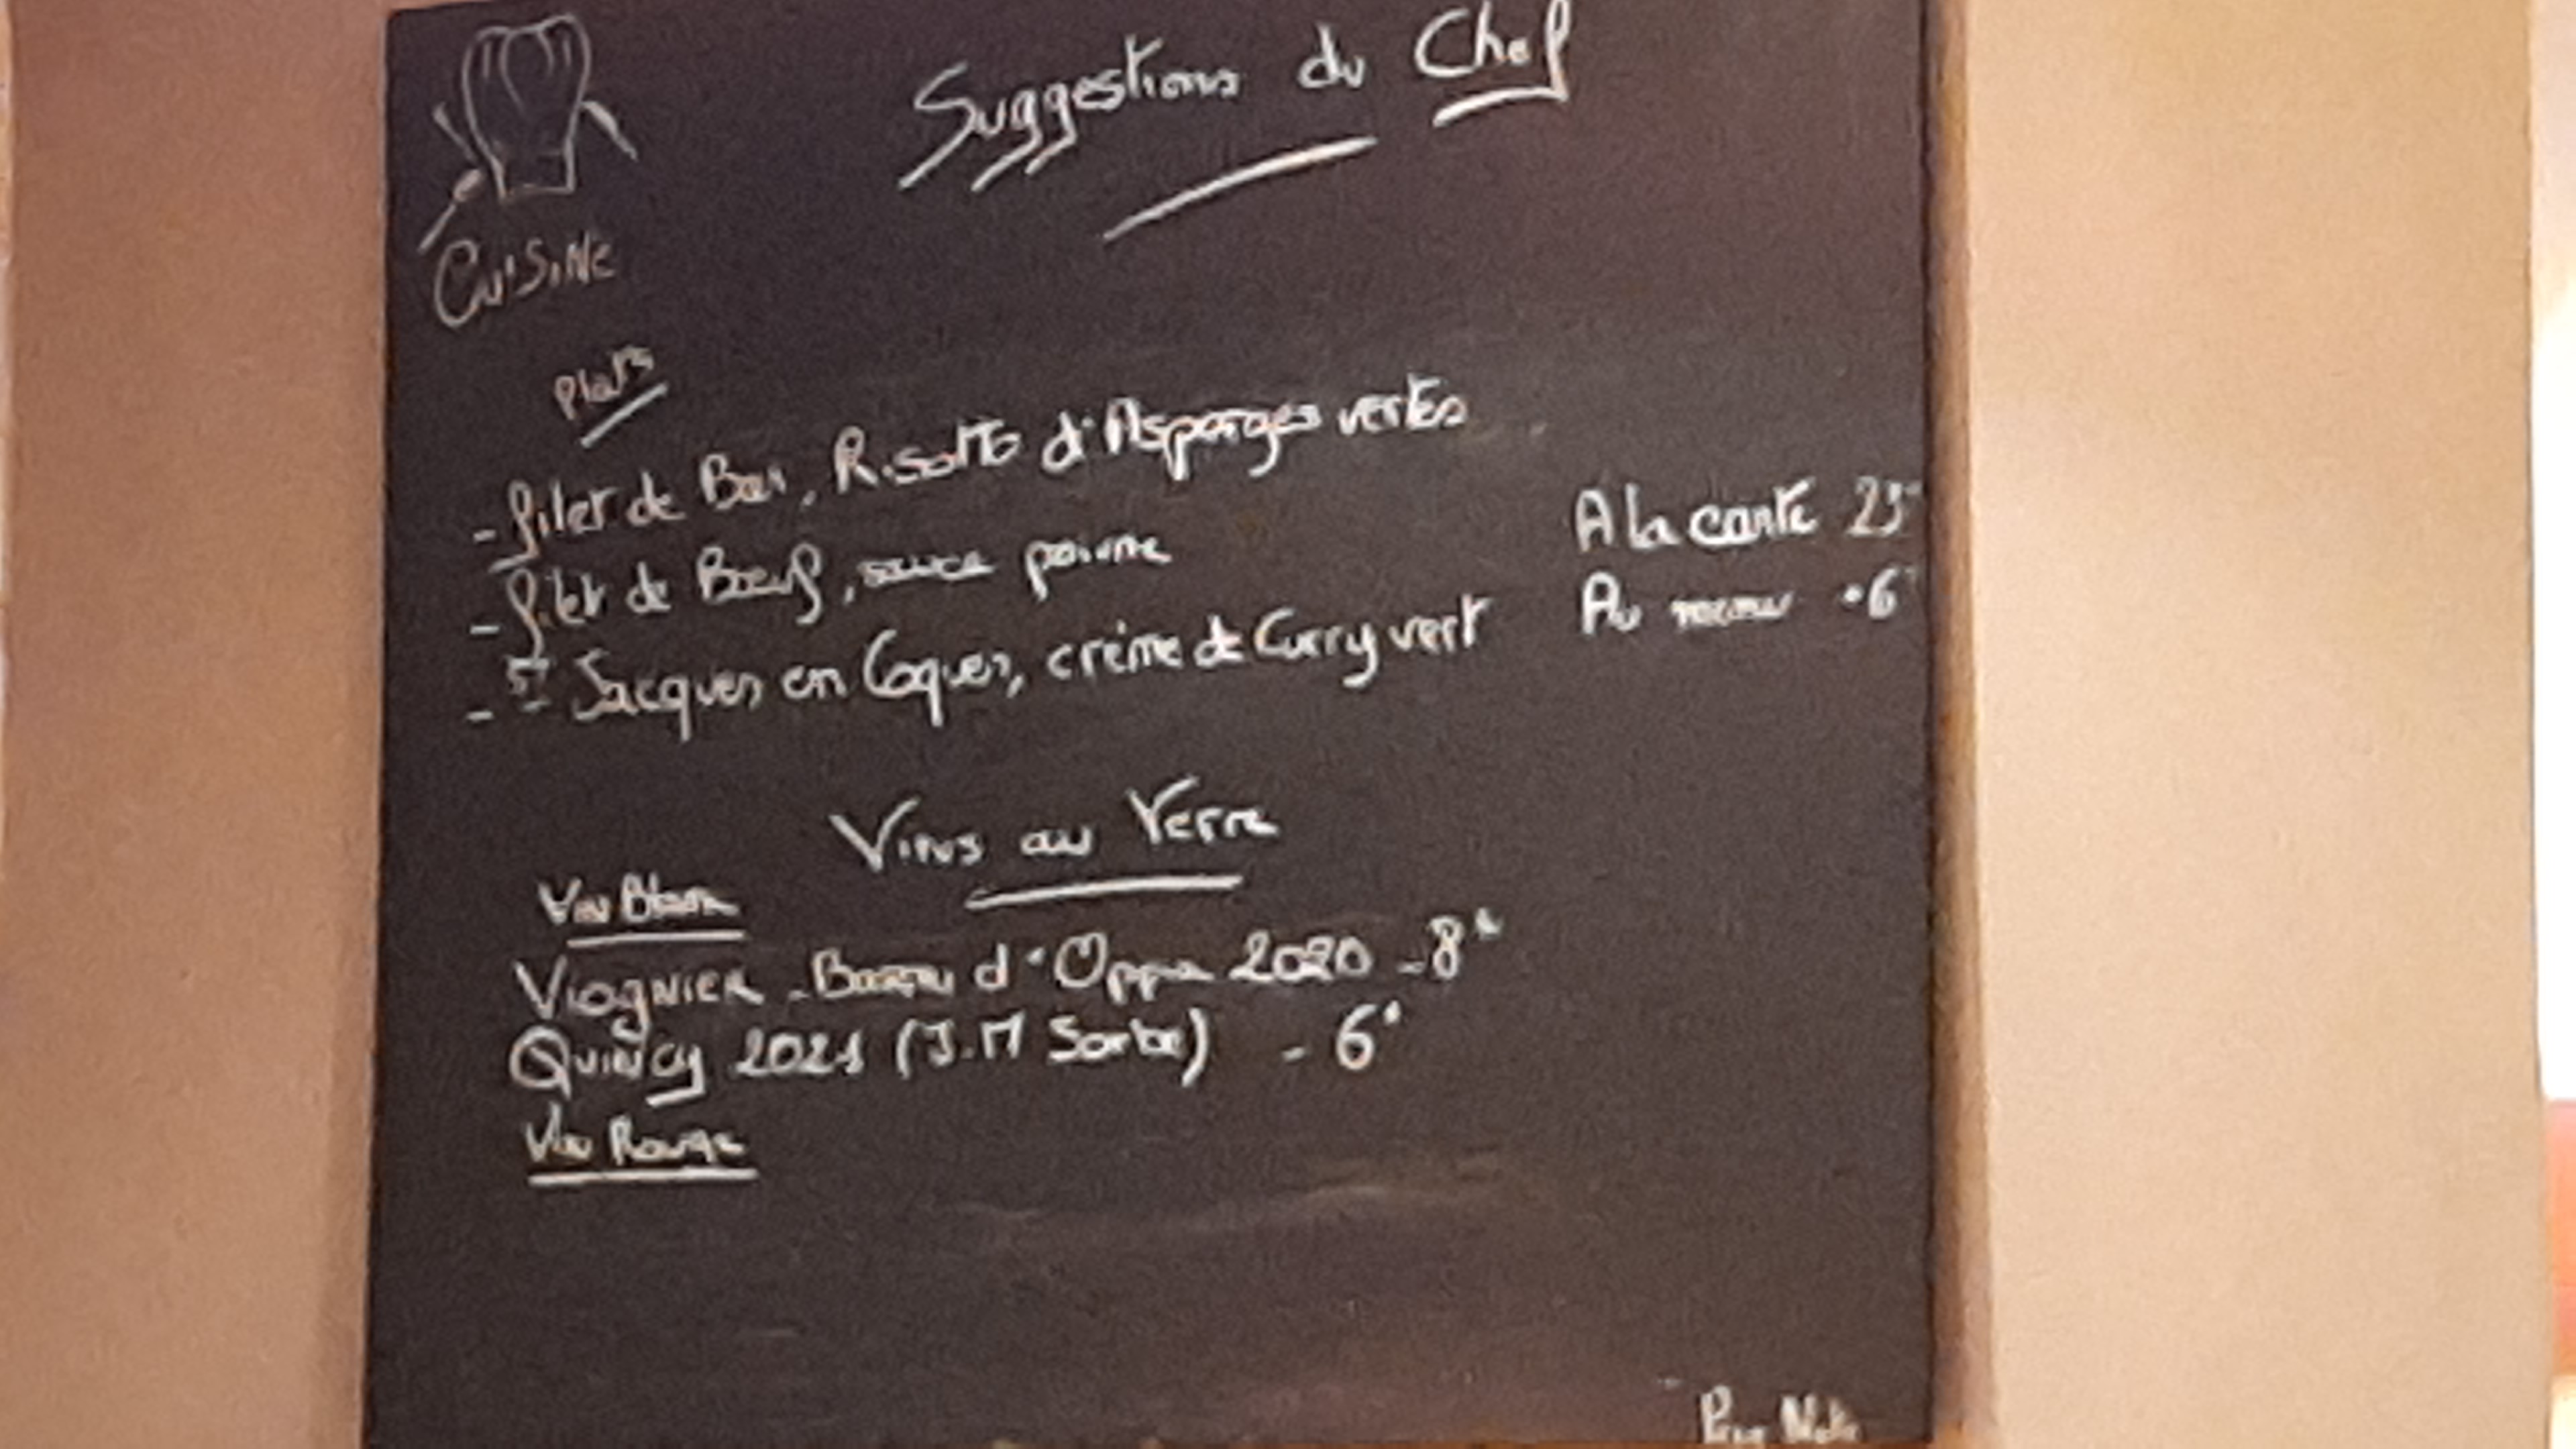 Suggestions du Chef
CuiSiNe
Plats
- filet de Bar, Risotto d'Asperges vertes
- filet de Bœuf, sauce poivre
- St Jacques en Coques, crème de Curry vert
A la carte 23€
Au menu +6€
Vins au Verre
Vin Blanc
Viognier - d'Oppia 2020 - 8€
Quincy 2021 (J.M Sorbe) - 6€
Vin Rouge
Prix Nets